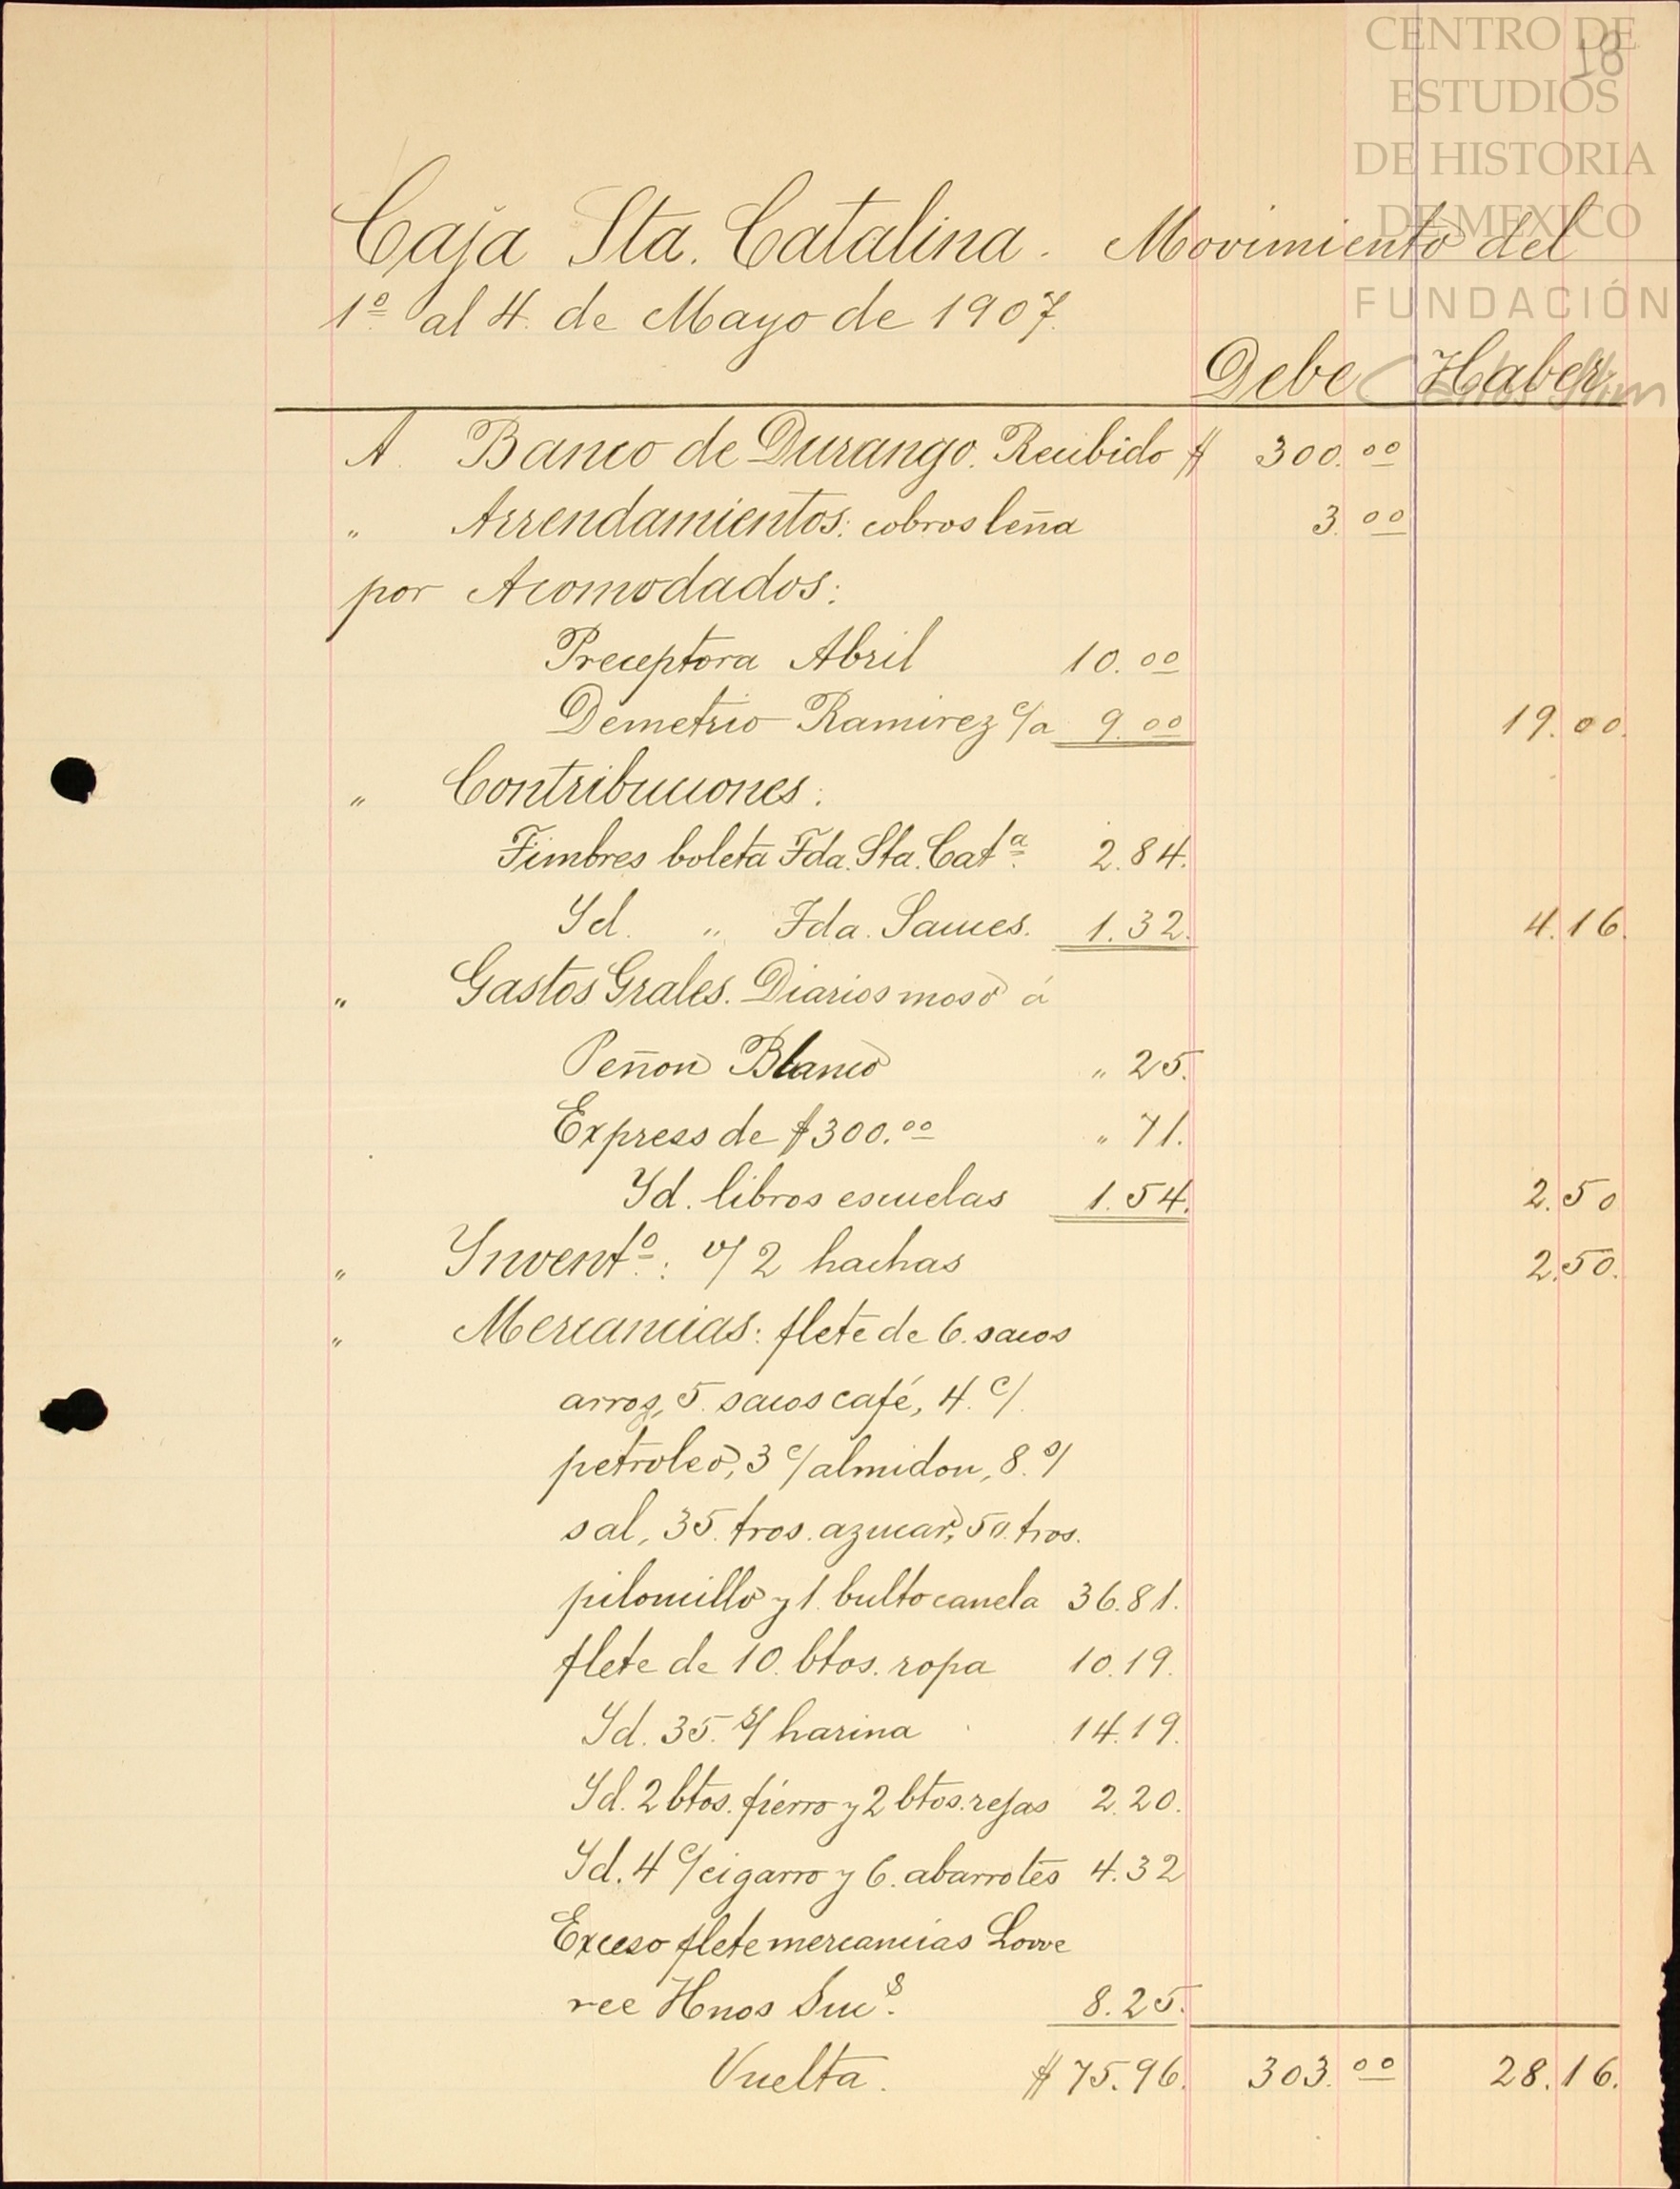 CENTRO DE
ESTUDIOS
DE HISTORIA
DE MEXICO
FUNDACIÓN
Carlos Slim
18
Caja Sta. Catalina. Movimiento del
1º al 4. de Mayo de 1907.
Debe Haber
A. Banco de Durango. Recibido $ 300.00
" Arrendamientos: cobros leña 3.00
por Acomodados:
Preceptora Abril 10.00
Demetrio Ramirez c/a 9.00 19.00.
" Contribuciones:
Timbres boleta Fda. Sta. Catª. 2.84.
Yd. " Fda. Sauces. 1.32. 4.16.
" Gastos Grales. Diarios moso á
Peñon Blanco " 25.
Express de $300.00 " 71.
Yd. libros escuelas 1.54. 2.50
" Ynventº.: v/ 2 hachas 2.50.
" Mercancias: flete de 6. sacos
arroz, 5. sacos café, 4. c/.
petroleo, 3 c/ almidon, 8. s/
sal, 35. tros. azucar, 50. tros.
piloncillo y 1. bulto canela 36.81.
flete de 10. btos. ropa 10.19.
Yd. 35. s/ harina 14.19.
Yd. 2 btos. fierro y 2 btos. rejas 2.20.
Yd. 4 c/ cigarro y 6. abarrotes 4.32
Exceso flete mercancias Lowe
ree Hnos Sucs.
8.25.
Vuelta. $ 75.96. 303.00 28.16.